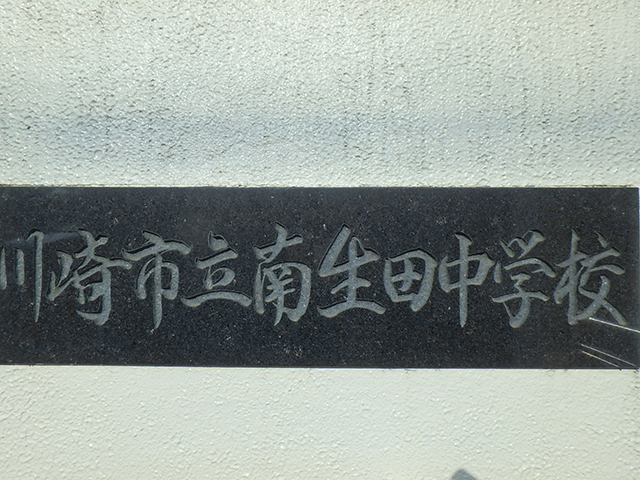 川崎市立南生田中学校